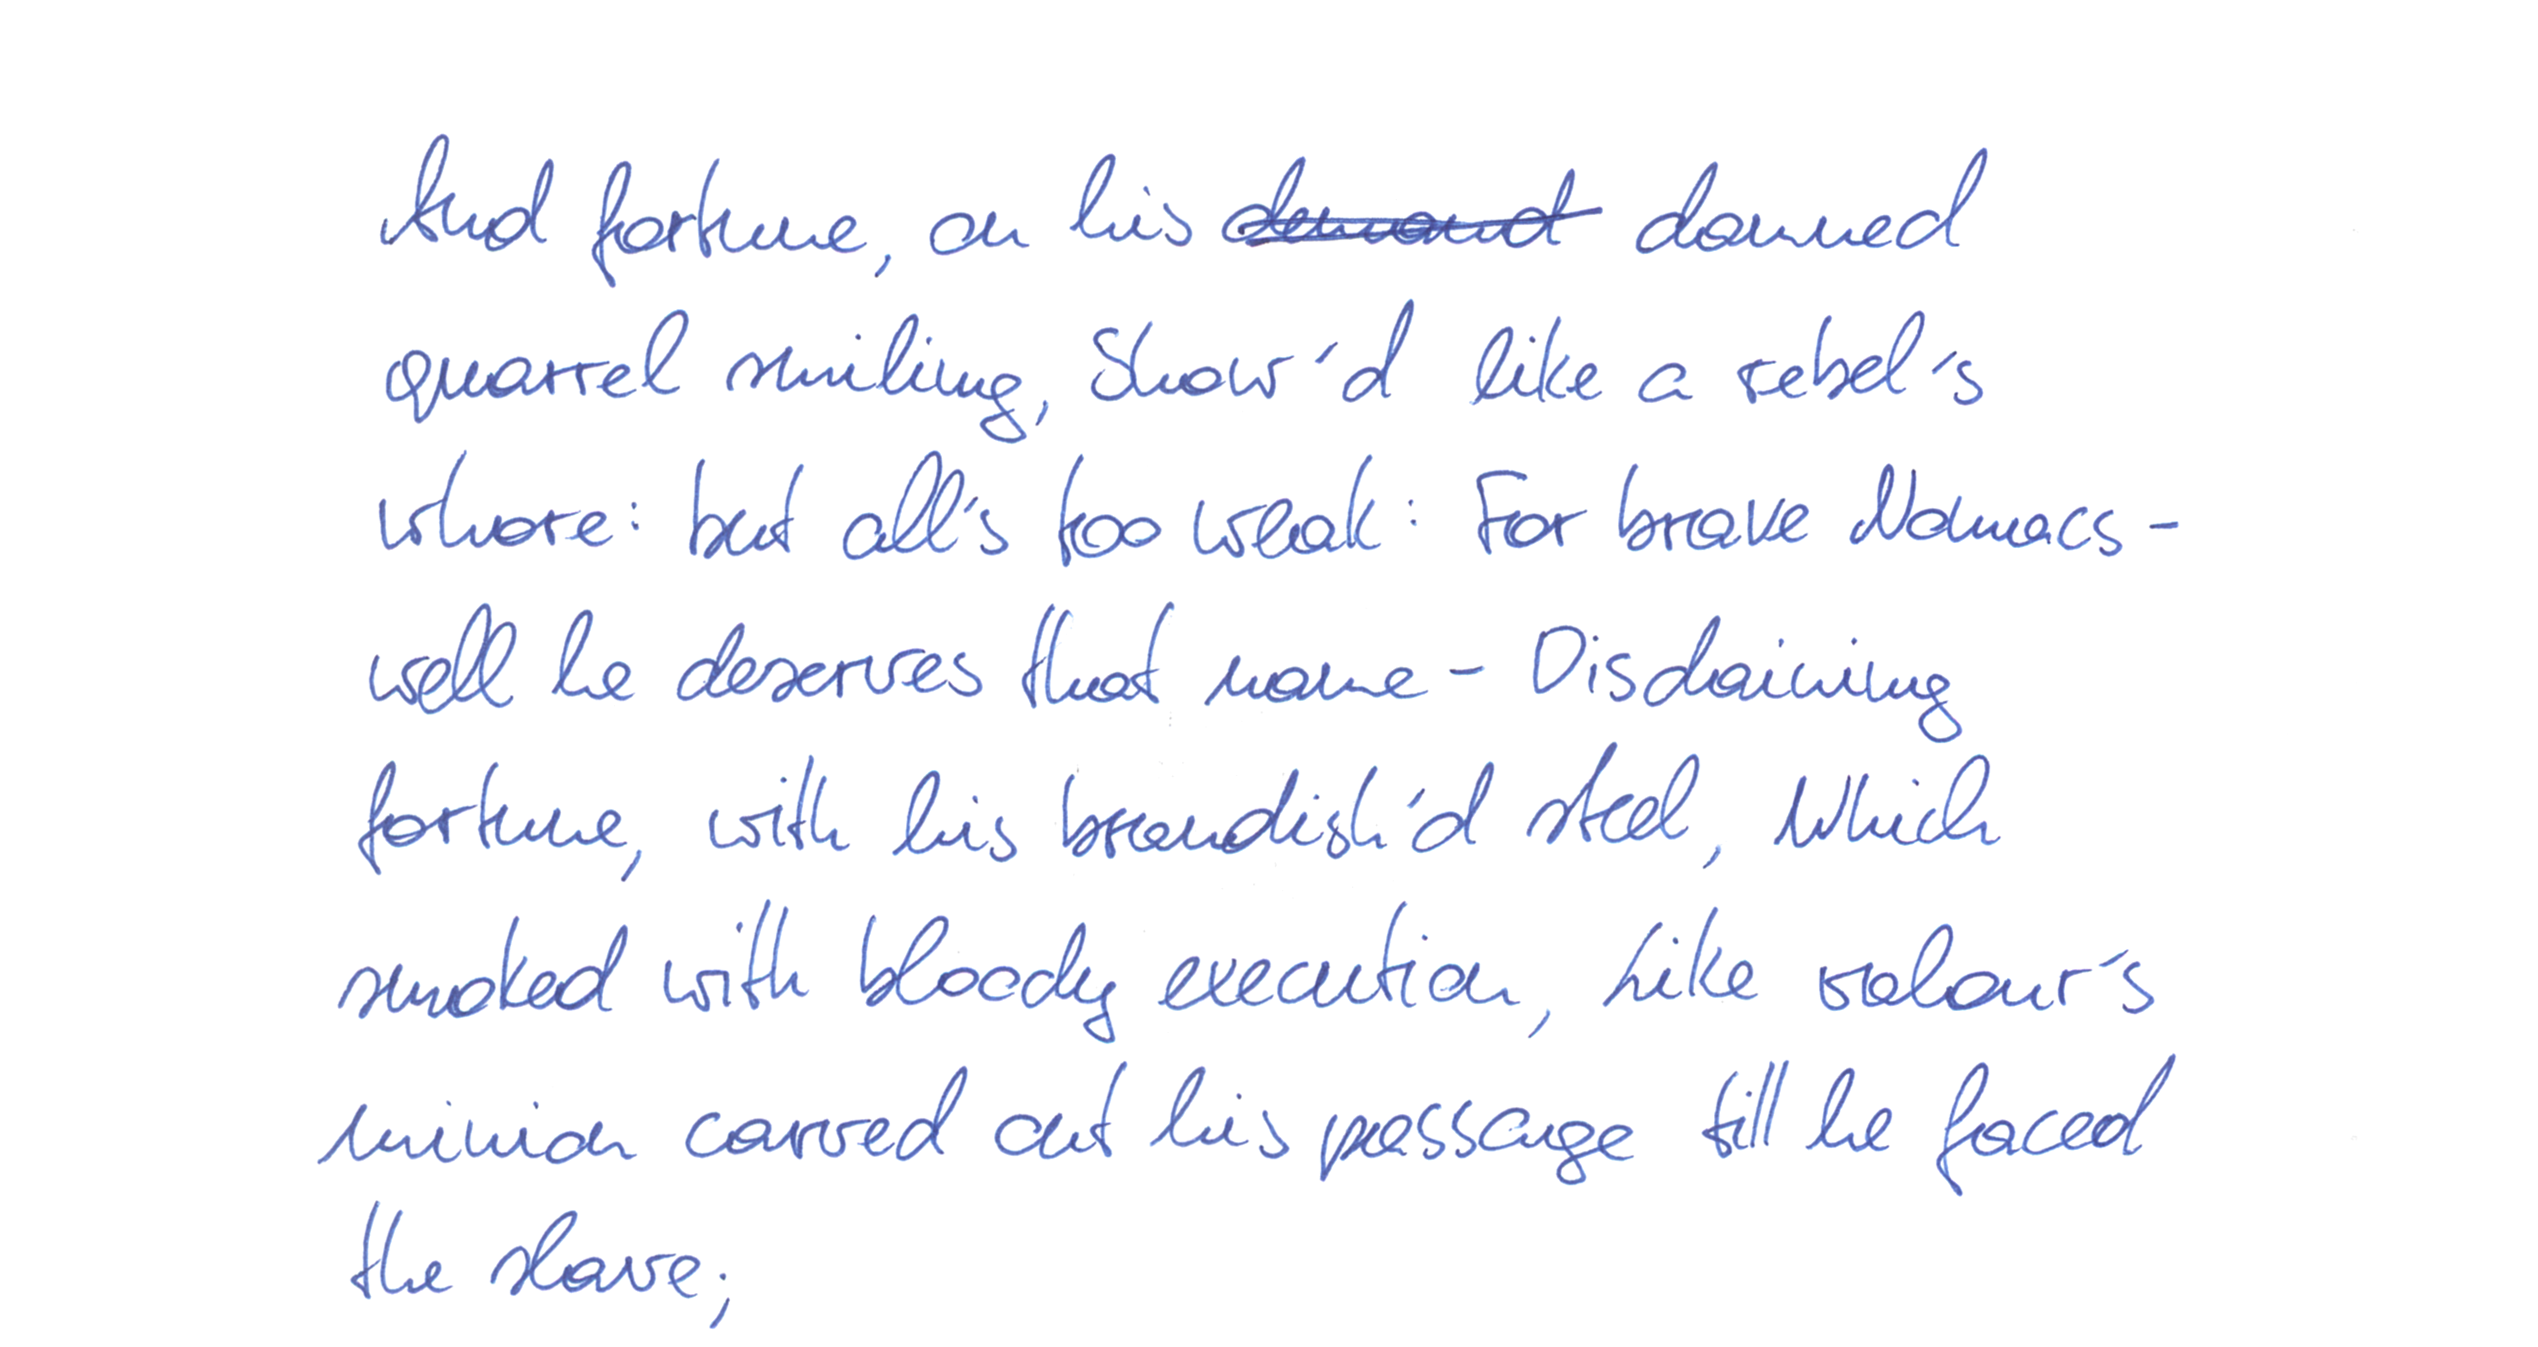 And fortune, on his demand damned
quarrel smiling, Show'd like a rebel's
whore: but all's too weak: For brave Nomacs -
well he deserves that name - Disdaining
fortune, with his brandish'd steel, Which
smoked with bloody execution, Like valour's
minion carved out his passage till he faced
the slave;